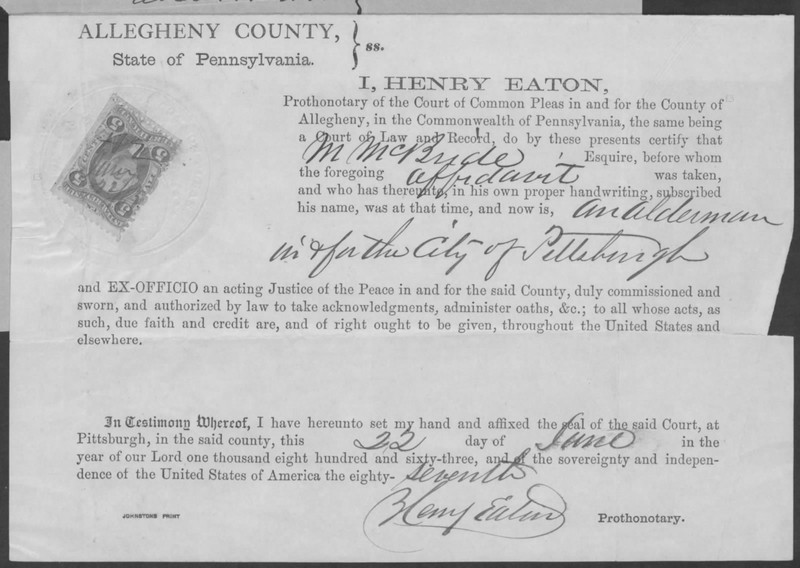 ALLEGHENY COUNTY,
State of Pennsylvania.
} ss.
I, HENRY EATON,
Prothonotary of the Court of Common Pleas in and for the County of
Allegheny, in the Commonwealth of Pennsylvania, the same being
a Court of Law and Record, do by these presents certify that
M McBride, Esquire, before whom
the foregoing affidavit was taken,
and who has thereunto, in his own proper handwriting, subscribed
his name, was at that time, and now is, an alderman
in & for the City of Pittsburgh
and EX-OFFICIO an acting Justice of the Peace in and for the said County, duly commissioned and
sworn, and authorized by law to take acknowledgments, administer oaths, &c.; to all whose acts, as
such, due faith and credit are, and of right ought to be given, throughout the United States and
elsewhere.
In Testimony Whereof, I have hereunto set my hand and affixed the seal of the said Court, at
Pittsburgh, in the said county, this 22 day of June in the
year of our Lord one thousand eight hundred and sixty-three, and of the sovereignty and indepen-
dence of the United States of America the eighty-seventh
Henry Eaton Prothonotary.
JOHNSTONS PRINT